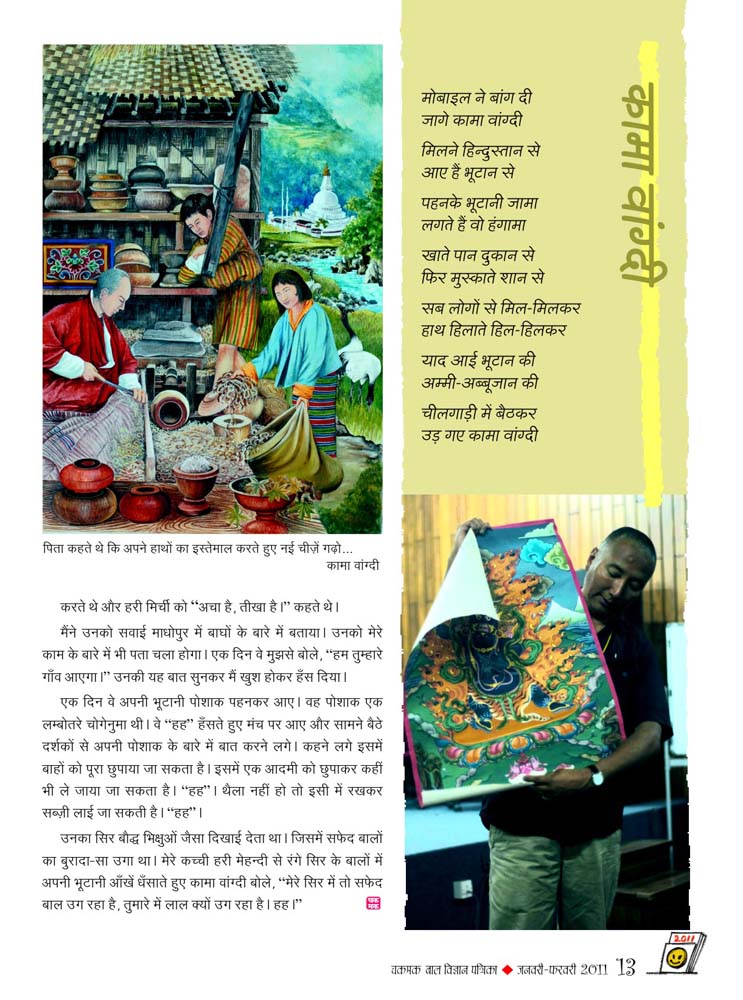 कामा वांग्दी
मोबाइल ने बांग दी
जागे कामा वांग्दी
मिलने हिन्दुस्तान से
आए हैं भूटान से
पहनके भूटानी जामा
लगते हैं वो हंगामा
खाते पान दुकान से
फिर मुस्काते शान से
सब लोगों से मिल-मिलकर
हाथ हिलाते हिल-हिलकर
याद आई भूटान की
अम्मी-अब्बूजान की
चीलगाड़ी में बैठकर
उड़ गए कामा वांग्दी
पिता कहते थे कि अपने हाथों का इस्तेमाल करते हुए नई चीज़ें गढ़ो...
कामा वांग्दी
करते थे और हरी मिर्ची को “अचा है, तीखा है।” कहते थे।
मैंने उनको सवाई माधोपुर में बाघों के बारे में बताया। उनको मेरे
काम के बारे में भी पता चला होगा। एक दिन वे मुझसे बोले, “हम तुम्हारे
गाँव आएगा।” उनकी यह बात सुनकर मैं खुश होकर हँस दिया।
एक दिन वे अपनी भूटानी पोशाक पहनकर आए। वह पोशाक एक
लम्बोतरे चोगेनुमा थी। वे “हह” हँसते हुए मंच पर आए और सामने बैठे
दर्शकों से अपनी पोशाक के बारे में बात करने लगे। कहने लगे इसमें
बाहों को पूरा छुपाया जा सकता है। इसमें एक आदमी को छुपाकर कहीं
भी ले जाया जा सकता है। “हह”। थैला नहीं हो तो इसी में रखकर
सब्ज़ी लाई जा सकती है। “हह”।
उनका सिर बौद्ध भिक्षुओं जैसा दिखाई देता था। जिसमें सफेद बालों
का बुरादा-सा उगा था। मेरे कच्ची हरी मेहन्दी से रंगे सिर के बालों में
अपनी भूटानी आँखें धँसाते हुए कामा वांग्दी बोले, “मेरे सिर में तो सफेद
बाल उग रहा है, तुमारे में लाल क्यों उग रहा है। हह।”
चक
मक
चकमक बाल विज्ञान पत्रिका ◆ जनवरी-फरवरी 2011 13
2011